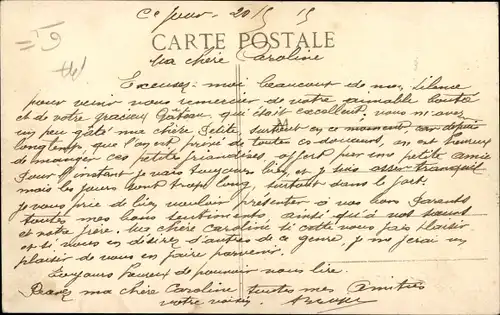 Ce jour 20/5 15
CARTE POSTALE
Ma chère Caroline
Excusez-moi beaucoup de mon silence
pour venir vous remercier de votre aimable bonté
et de votre gracieux Gâteau, qui était excellent, vous m'avez
un peu gâté ma chère petite surtout en ce moment car depuis
longtemps, que l'on est privé de toutes ces douceurs, on est heureux
de manger ces petites friandises, offert par une petite amie
Pour l'instant je vais toujours bien, et je suis assez tranquil
mais les jours sont trop long, surtout dans le fort.
je vous prie de bien vouloir présenter à vos bons Parents
toutes mes bons sentiments ainsi qu'à vos sœurs
et votre frère. Ma chère Caroline si cette vous fais plaisir
et si vous en désirez d'autres de ce genre, je me ferai un
plaisir de vous en faire parvenir.
Toujours heureux de pouvoir vous lire.
Recevez ma chère Caroline toutes mes Amitiés
votre